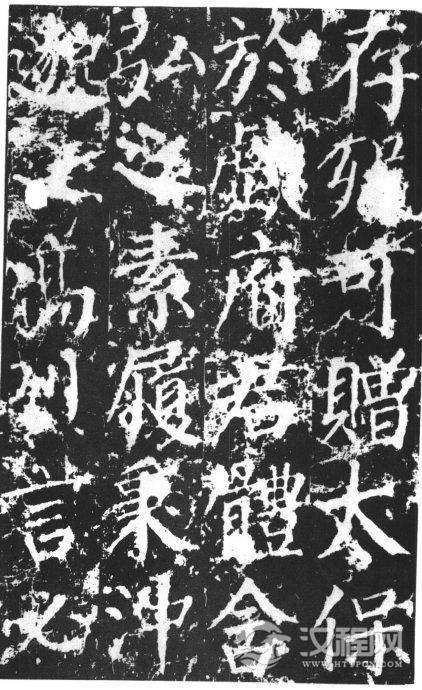 存殁可贈太保
於戲府君體含
弘之素履秉沖
邈之高烈言必
汉程网
WWW.HTTPCN.COM